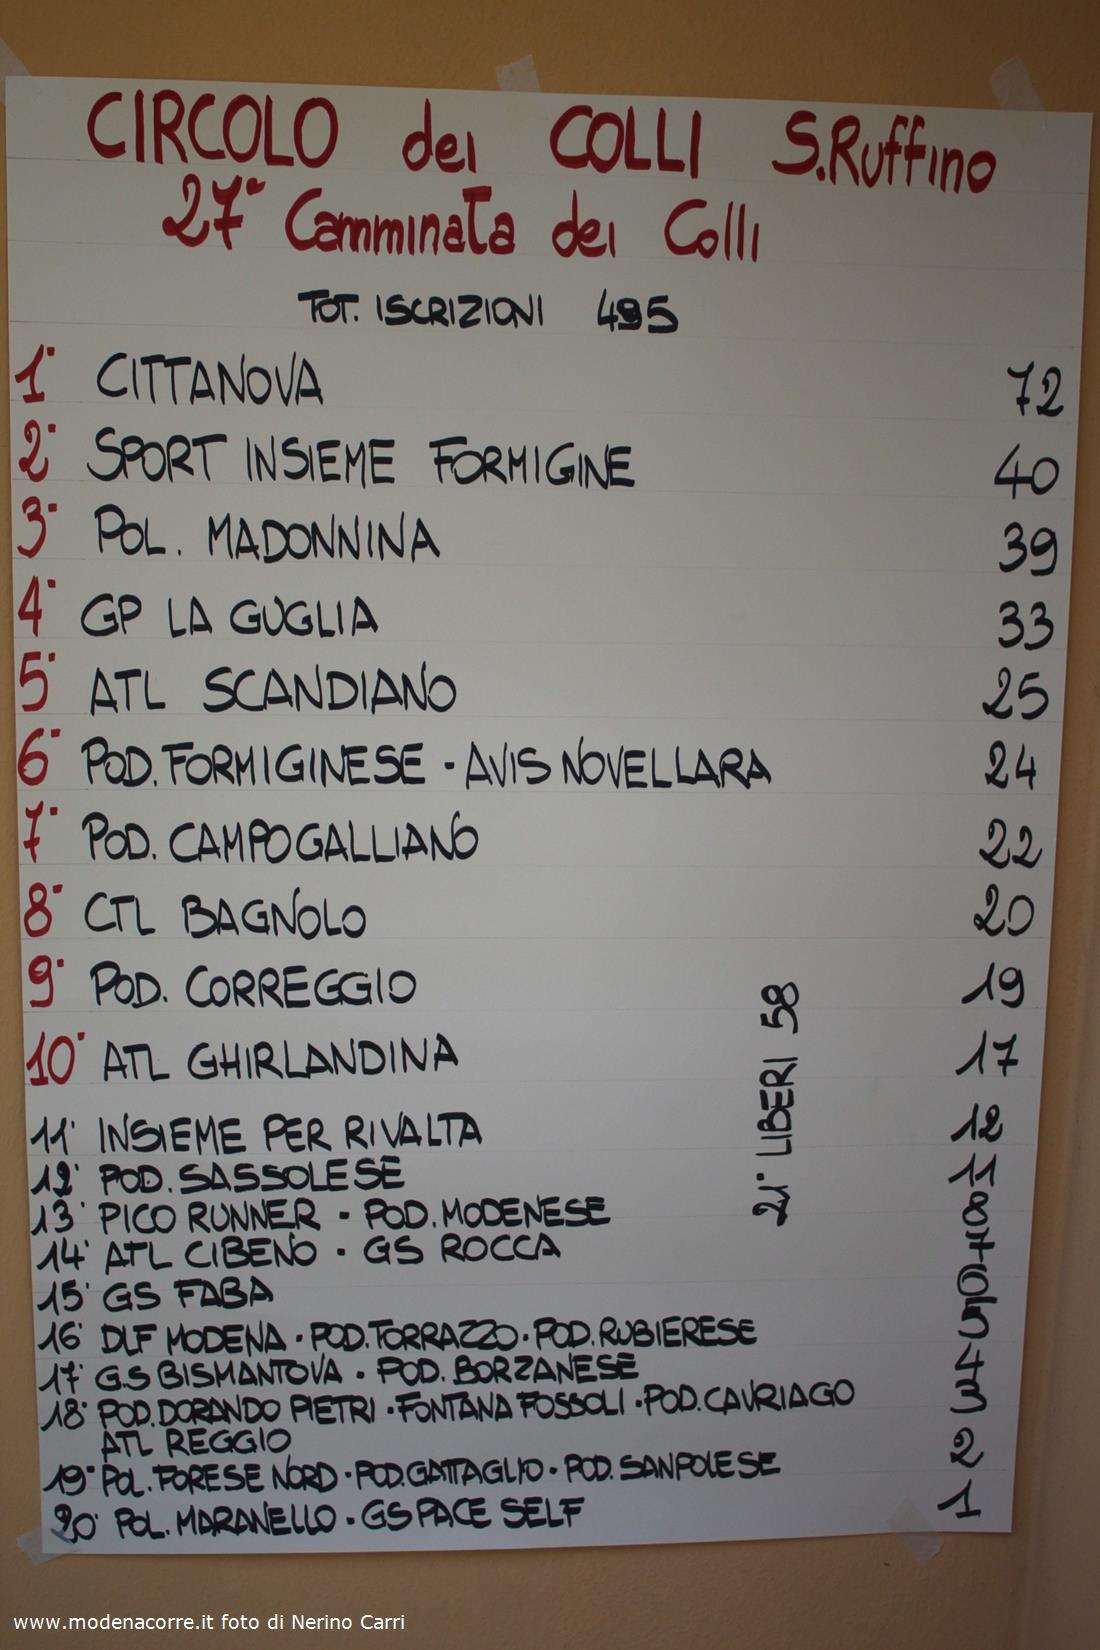 CIRCOLO dei COLLI S.Ruffino
27° Camminata dei Colli
TOT. ISCRIZIONI 495
1° CITTANOVA 72
2° SPORT INSIEME FORMIGINE 40
3° POL. MADONNINA 39
4° GP LA GUGLIA 33
5° ATL SCANDIANO 25
6° POD.FORMIGINESE - AVIS NOVELLARA 24
7° POD. CAMPOGALLIANO 22
8° CTL BAGNOLO 20
9° POD. CORREGGIO 19
10° ATL GHIRLANDINA 17
21° LIBERI 58
11° INSIEME PER RIVALTA 12
12° POD. SASSOLESE 11
13° PICO RUNNER - POD. MODENESE 8
14° ATL CIBENO - GS ROCCA 7
15° GS FABA 6
16° DLF MODENA - POD.TORRAZZO - POD.RUBIERESE 5
17° G.S BISMANTOVA - POD. BORZANESE 4
18° POD.DORANDO PIETRI - FONTANA FOSSOLI - POD.CAVRIAGO 3
ATL REGGIO
19° POL. FORESE NORD - POD.GATTAGLIO - POD. SANPOLESE 2
20° POL. MARANELLO - GS PACE SELF 1
www.modenacorre.it foto di Nerino Carri